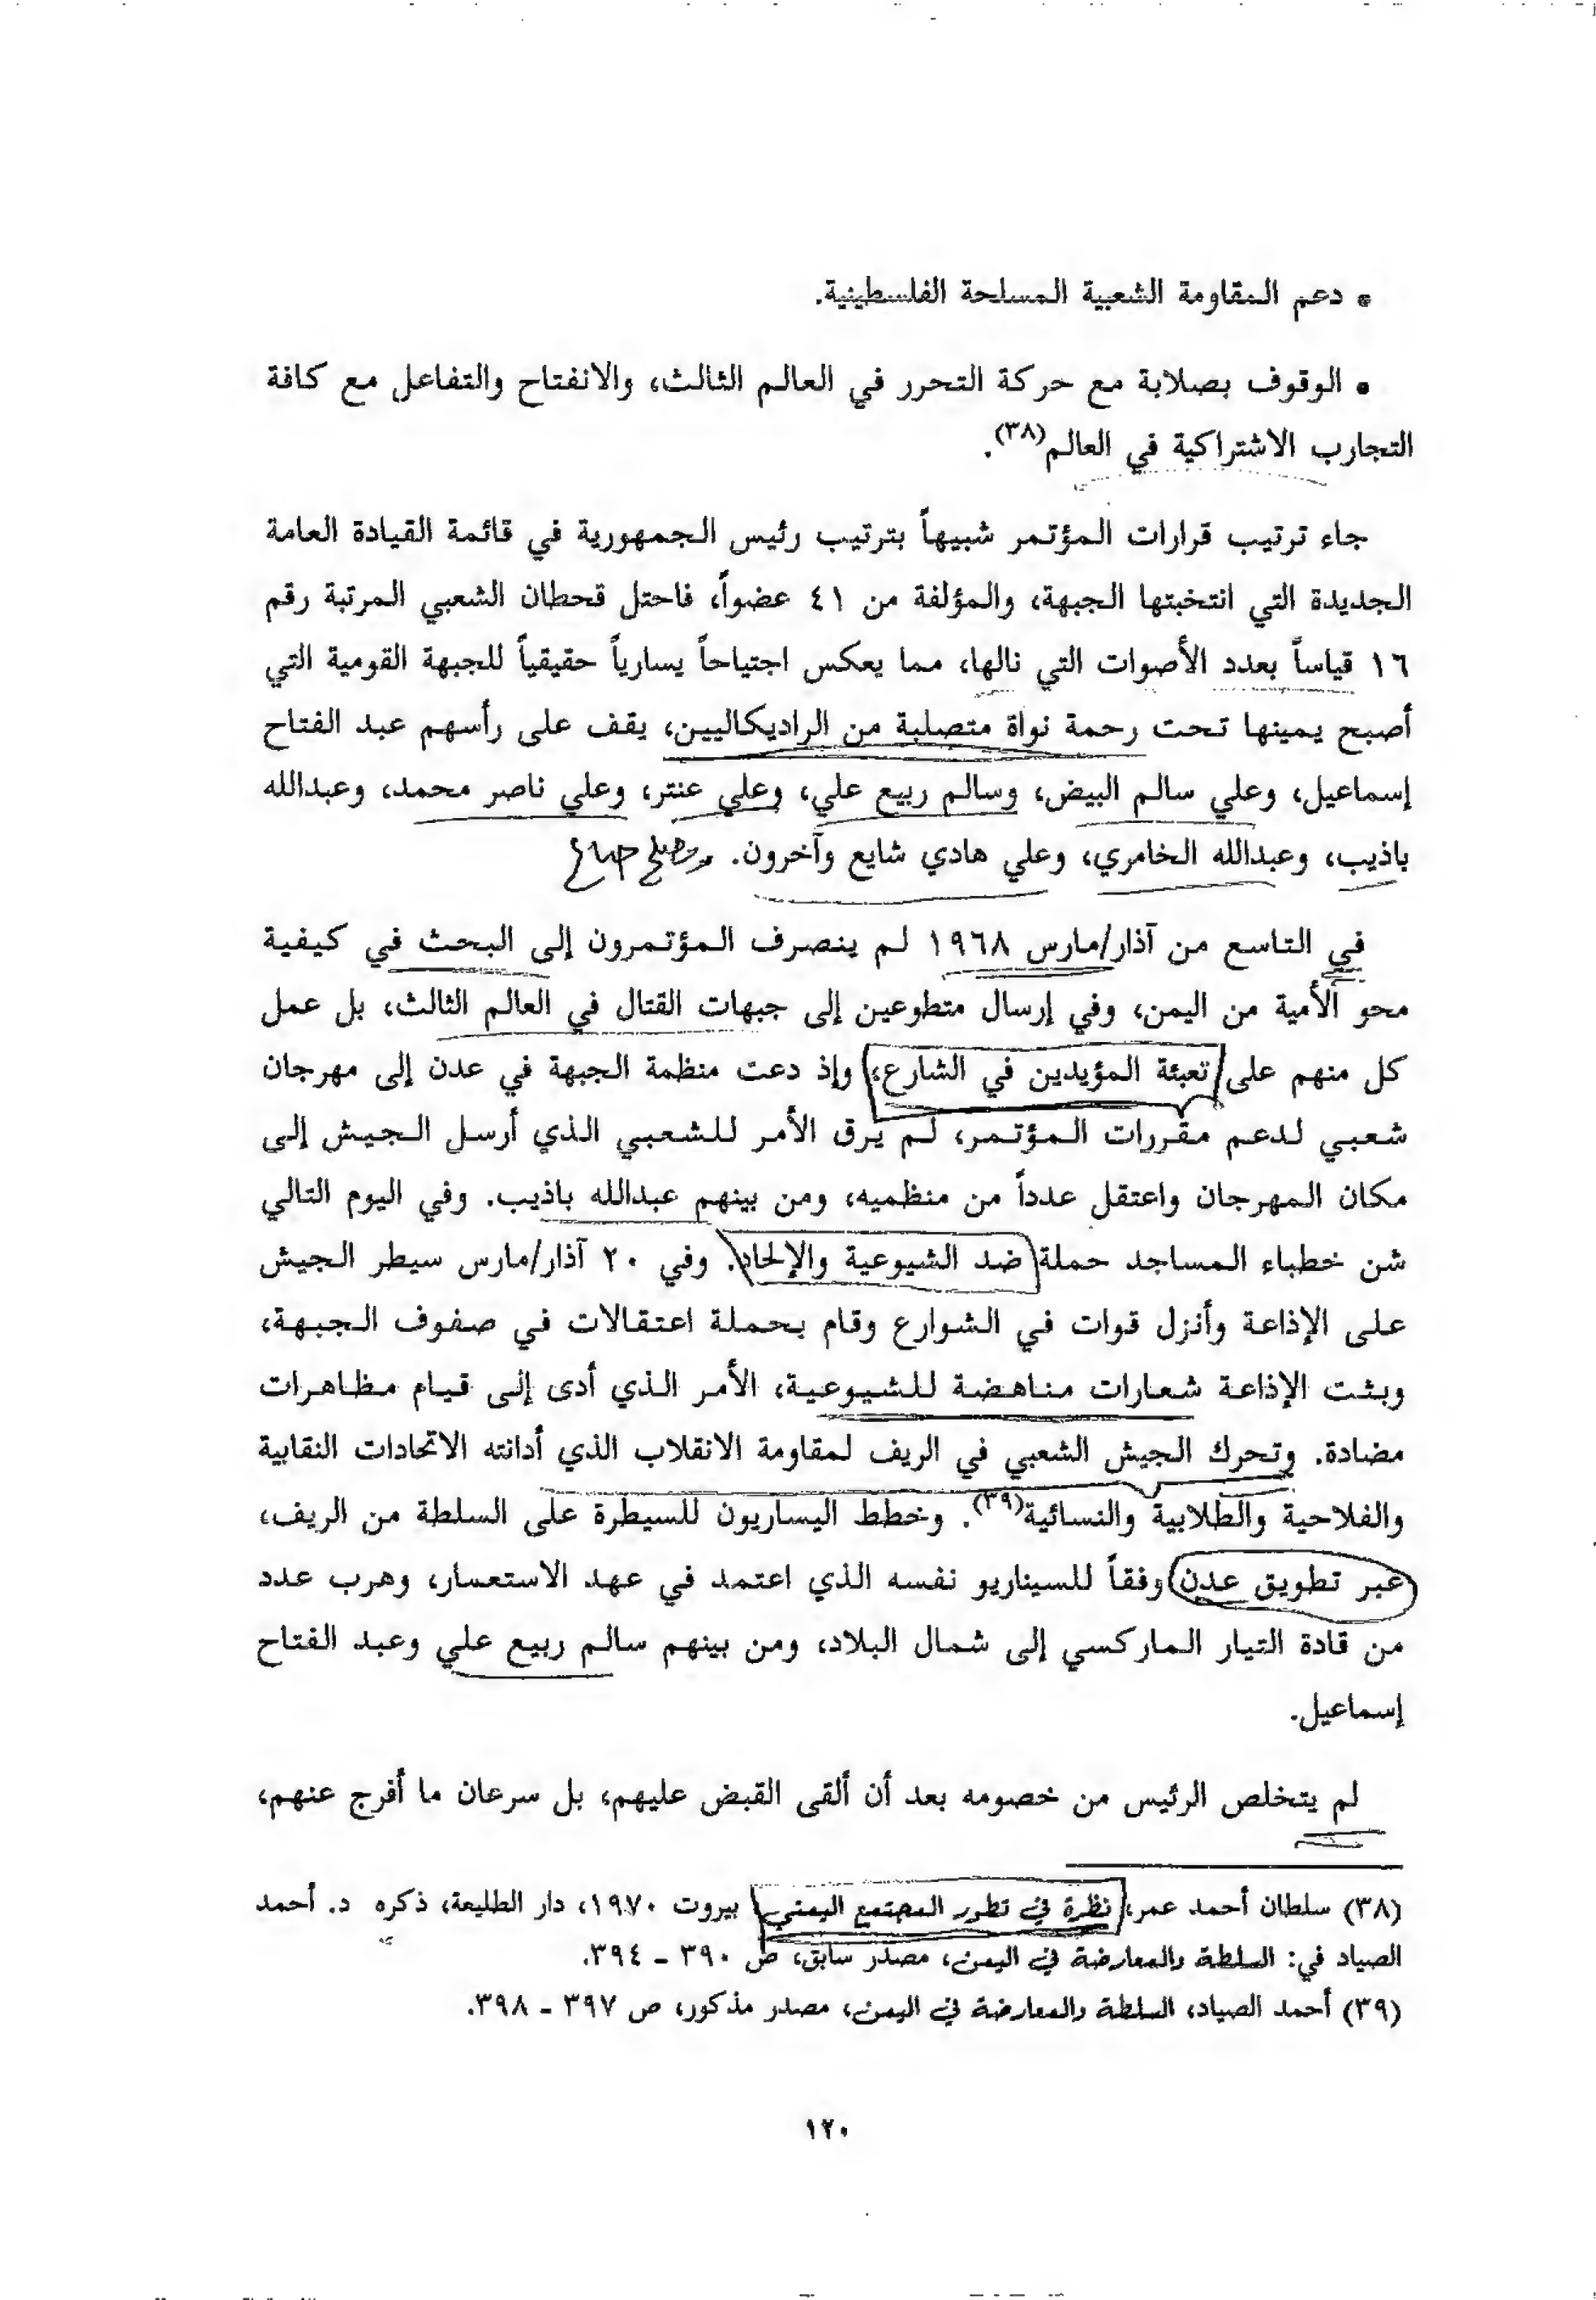 • دعم المقاومة الشعبية المسلحة الفلسطينية.
• الوقوف بصلابة مع حركة التحرر في العالم الثالث، والانفتاح والتفاعل مع كافة
التجارب الاشتراكية في العالم(٣٨).
جاء ترتيب قرارات المؤتمر شبيهاً بترتيب رئيس الجمهورية في قائمة القيادة العامة
الجديدة التي انتخبتها الجبهة، والمؤلفة من ٤١ عضواً، فاحتل قحطان الشعبي المرتبة رقم
١٦ قياساً بعدد الأصوات التي نالها، مما يعكس اجتياحاً يسارياً حقيقياً للجبهة القومية التي
أصبح يمينها تحت رحمة نواة متصلبة من الراديكاليين، يقف على رأسهم عبد الفتاح
إسماعيل، وعلي سالم البيض، وسالم ربيع علي، وعلي عنتر، وعلي ناصر محمد، وعبدالله
باذيب، وعبدالله الخامري، وعلي هادي شايع وآخرون.
في التاسع من آذار/مارس ١٩٦٨ لم ينصرف المؤتمرون إلى البحث في كيفية
محو الأمية من اليمن، وفي إرسال متطوعين إلى جبهات القتال في العالم الثالث، بل عمل
كل منهم على تعبئة المؤيدين في الشارع، وإذ دعت منظمة الجبهة في عدن إلى مهرجان
شعبي لدعم مقررات المؤتمر، لم يرق الأمر للشعبي الذي أرسل الجيش إلى
مكان المهرجان واعتقل عدداً من منظميه، ومن بينهم عبدالله باذيب. وفي اليوم التالي
شن خطباء المساجد حملة ضد الشيوعية والإلحاد. وفي ٢٠ آذار/مارس سيطر الجيش
على الإذاعة وأنزل قوات في الشوارع وقام بحملة اعتقالات في صفوف الجبهة،
وبثت الإذاعة شعارات مناهضة للشيوعية، الأمر الذي أدى إلى قيام مظاهرات
مضادة. وتحرك الجيش الشعبي في الريف لمقاومة الانقلاب الذي أدانته الاتحادات النقابية
والفلاحية والطلابية والنسائية(٣٩). وخطط اليساريون للسيطرة على السلطة من الريف،
عبر تطويق عدن وفقاً للسيناريو نفسه الذي اعتمد في عهد الاستعمار، وهرب عدد
من قادة التيار الماركسي إلى شمال البلاد، ومن بينهم سالم ربيع علي وعبد الفتاح
إسماعيل.
لم يتخلص الرئيس من خصومه بعد أن ألقى القبض عليهم، بل سرعان ما أفرج عنهم،
(٣٨) سلطان أحمد عمر، نظرة في تطور المجتمع اليمني، بيروت ١٩٧٠، دار الطليعة، ذكره د. أحمد
الصياد في: السلطة والمعارضة في اليمن، مصدر سابق، ص ٣٩٠ - ٣٩٤.
(٣٩) أحمد الصياد، السلطة والمعارضة في اليمن، مصدر مذكور، ص ٣٩٧ - ٣٩٨.
١٢٠